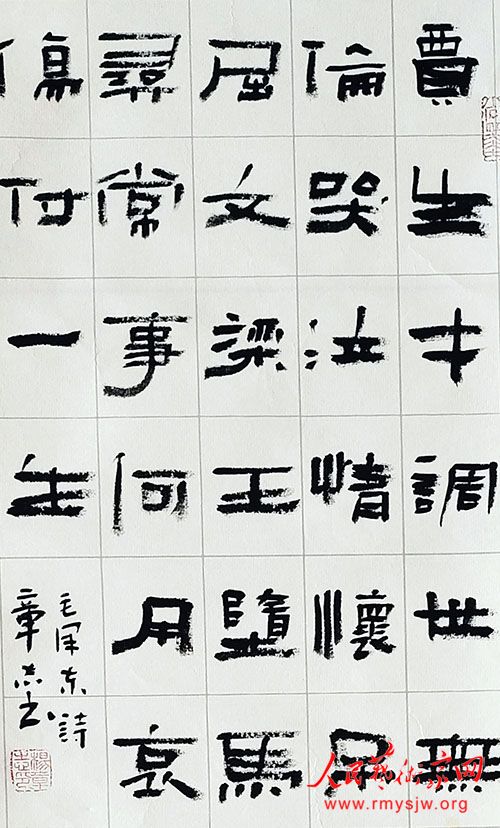 賈生才調世無
倫哭泣情懷吊
屈文梁王墮馬
尋常事何用哀
傷付一生
毛泽东詩
章志书
人民藝術家网
www.rmysjw.org